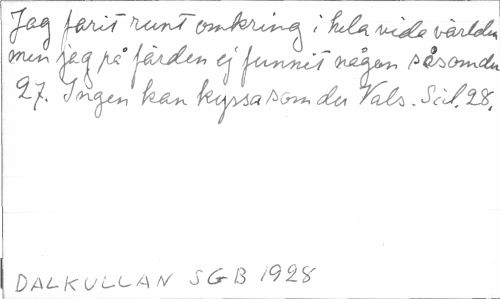 Jag farit runt omkring i hela vida världen
men jag på färden ej funnit någon såsom du
27. Ingen kan kyssa som du Vals. Scil. 28.
DALKULLAN SGB 1928